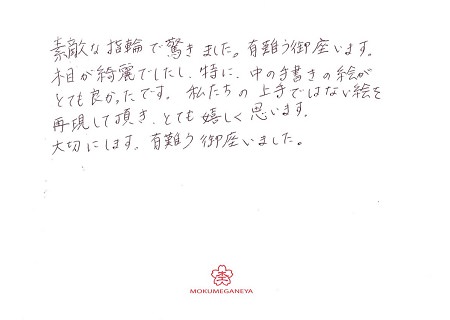 素敵な指輪で驚きました。有難う御座います。
木目が綺麗でしたし、特に、中の手書きの絵が
とても良かったです。私たちの上手ではない絵を
再現して頂き、とても嬉しく思います。
大切にします。有難う御座いました。
MOKUMEGANEYA